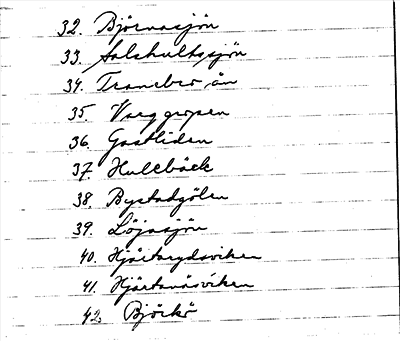 32. Björnasjön
33. Salshultssjön
34. Tranebro ån
35. Varggropen
36. Gastliden
37. Hullebäck
38. Bystadgölen
39. Löjasjön
40. Hjärtarydsviken
41. Hjärtanäsviken
42. Björkö